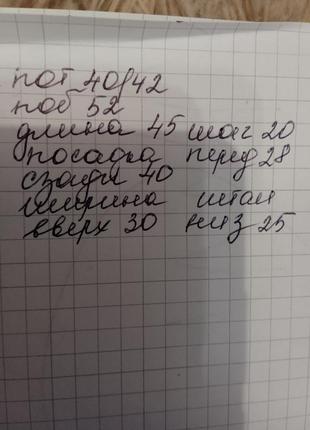 пот 40/42
поб 52
длина 45 шаг 20
посадка перед 28
сзади 40
ширина штан
вверх 30 низ 25